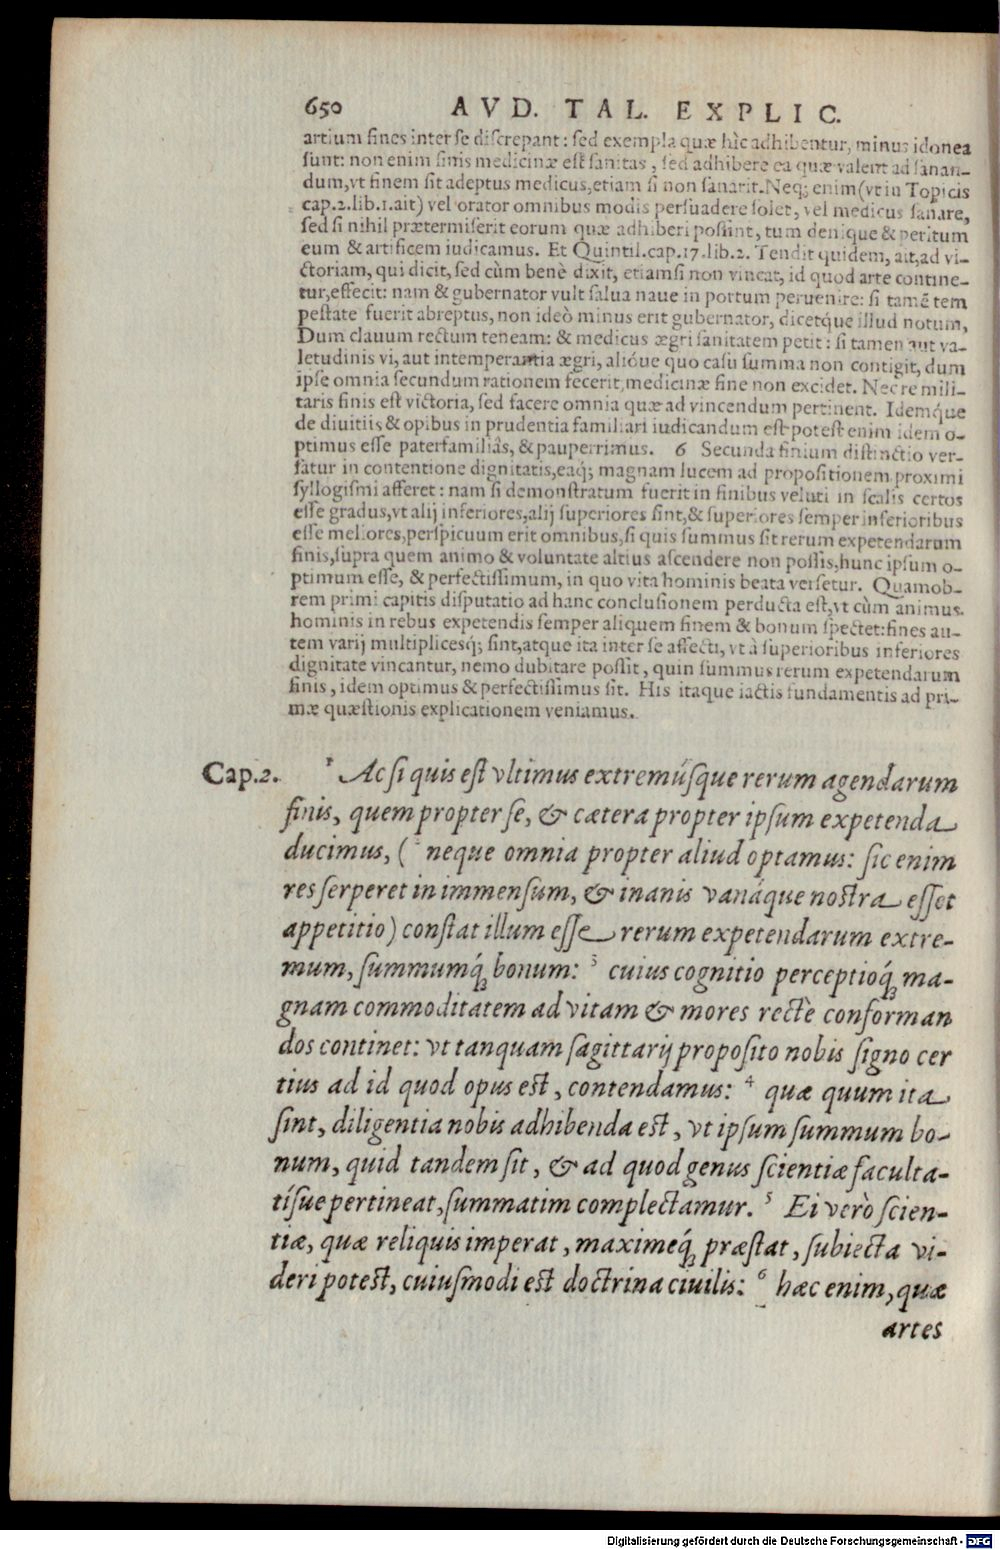 650 AVD. TAL. EXPLIC.
artium fines inter se discrepant: sed exempla quæ hîc adhibentur, minus idonea
sunt: non enim finis medicinæ est sanitas, sed adhibere ea quæ valent ad sanan-
dum, vt finem sit adeptus medicus, etiam si non sanarit. Neq; enim (vt in Topicis
cap.2.lib.1.ait) vel orator omnibus modis persuadere solet, vel medicus sanare,
sed si nihil prætermiserit eorum quæ adhiberi possint, tum denique & peritum
eum & artificem iudicamus. Et Quintil.cap.17.lib.2. Tendit quidem, ait, ad vi-
ctoriam, qui dicit, sed cùm benè dixit, etiamsi non vincat, id quod arte contine-
tur, effecit: nam & gubernator vult salua naue in portum peruenire: si tamẽ tem
pestate fuerit abreptus, non ideò minus erit gubernator, dicetq́ue illud notum,
Dum clauum rectum teneam: & medicus ægri sanitatem petit: si tamen aut va-
letudinis vi, aut intemperantia ægri, alióue quo casu summa non contigit, dum
ipse omnia secundum rationem fecerit, medicinæ fine non excidet. Nec re mili-
taris finis est victoria, sed facere omnia quæ ad vincendum pertinent. Idemq́ue
de diuitiis & opibus in prudentia familiari iudicandum est potest enim idem o-
ptimus esse paterfamiliâs, & pauperrimus. 6 Secunda finium distinctio ver-
satur in contentione dignitatis, eaq; magnam lucem ad propositionem proximi
syllogismi afferet: nam si demonstratum fuerit in finibus veluti in scalis certos
esse gradus, vt alij inferiores, alij superiores sint, & superiores semper inferioribus
esse meliores, perspicuum erit omnibus, si quis summus sit rerum expetendarum
finis, supra quem animo & voluntate altius ascendere non possis, hunc ipsum o-
ptimum esse, & perfectissimum, in quo vita hominis beata versetur. Quamob-
rem primi capitis disputatio ad hanc conclusionem perducta est, vt cùm animus
hominis in rebus expetendis semper aliquem finem & bonum spectet: fines au-
tem varij multiplicesq; sint, atque ita inter se affecti, vt à superioribus inferiores
dignitate vincantur, nemo dubitare possit, quin summus rerum expetendarum
finis, idem optimus & perfectissimus sit. His itaque iactis fundamentis ad pri-
mæ quæstionis explicationem veniamus.
Cap.2. 1 Ac si quis est vltimus extremúsque rerum agendarum
finis, quem propter se, & cætera propter ipsum expetenda
ducimus, (2 neque omnia propter aliud optamus: sic enim
res serperet in immensum, & inanis vanáque nostra esset
appetitio) constat illum esse rerum expetendarum extre-
mum, summumq́; bonum: 3 cuius cognitio perceptioq́; ma-
gnam commoditatem ad vitam & mores rectè conforman
dos continet: vt tanquam sagittarij proposito nobis signo cer
tius ad id quod opus est, contendamus: 4 quæ quum ita
sint, diligentia nobis adhibenda est, vt ipsum summum bo-
num, quid tandem sit, & ad quod genus scientiæ faculta-
tísue pertineat, summatim complectamur. 5 Ei verò scien-
tiæ, quæ reliquis imperat, maximeq́; præstat, subiecta vi-
deri potest, cuiusmodi est doctrina ciuilis: 6 hæc enim, quæ
artes
Digitalisierung gefördert durch die Deutsche Forschungsgemeinschaft - DFG